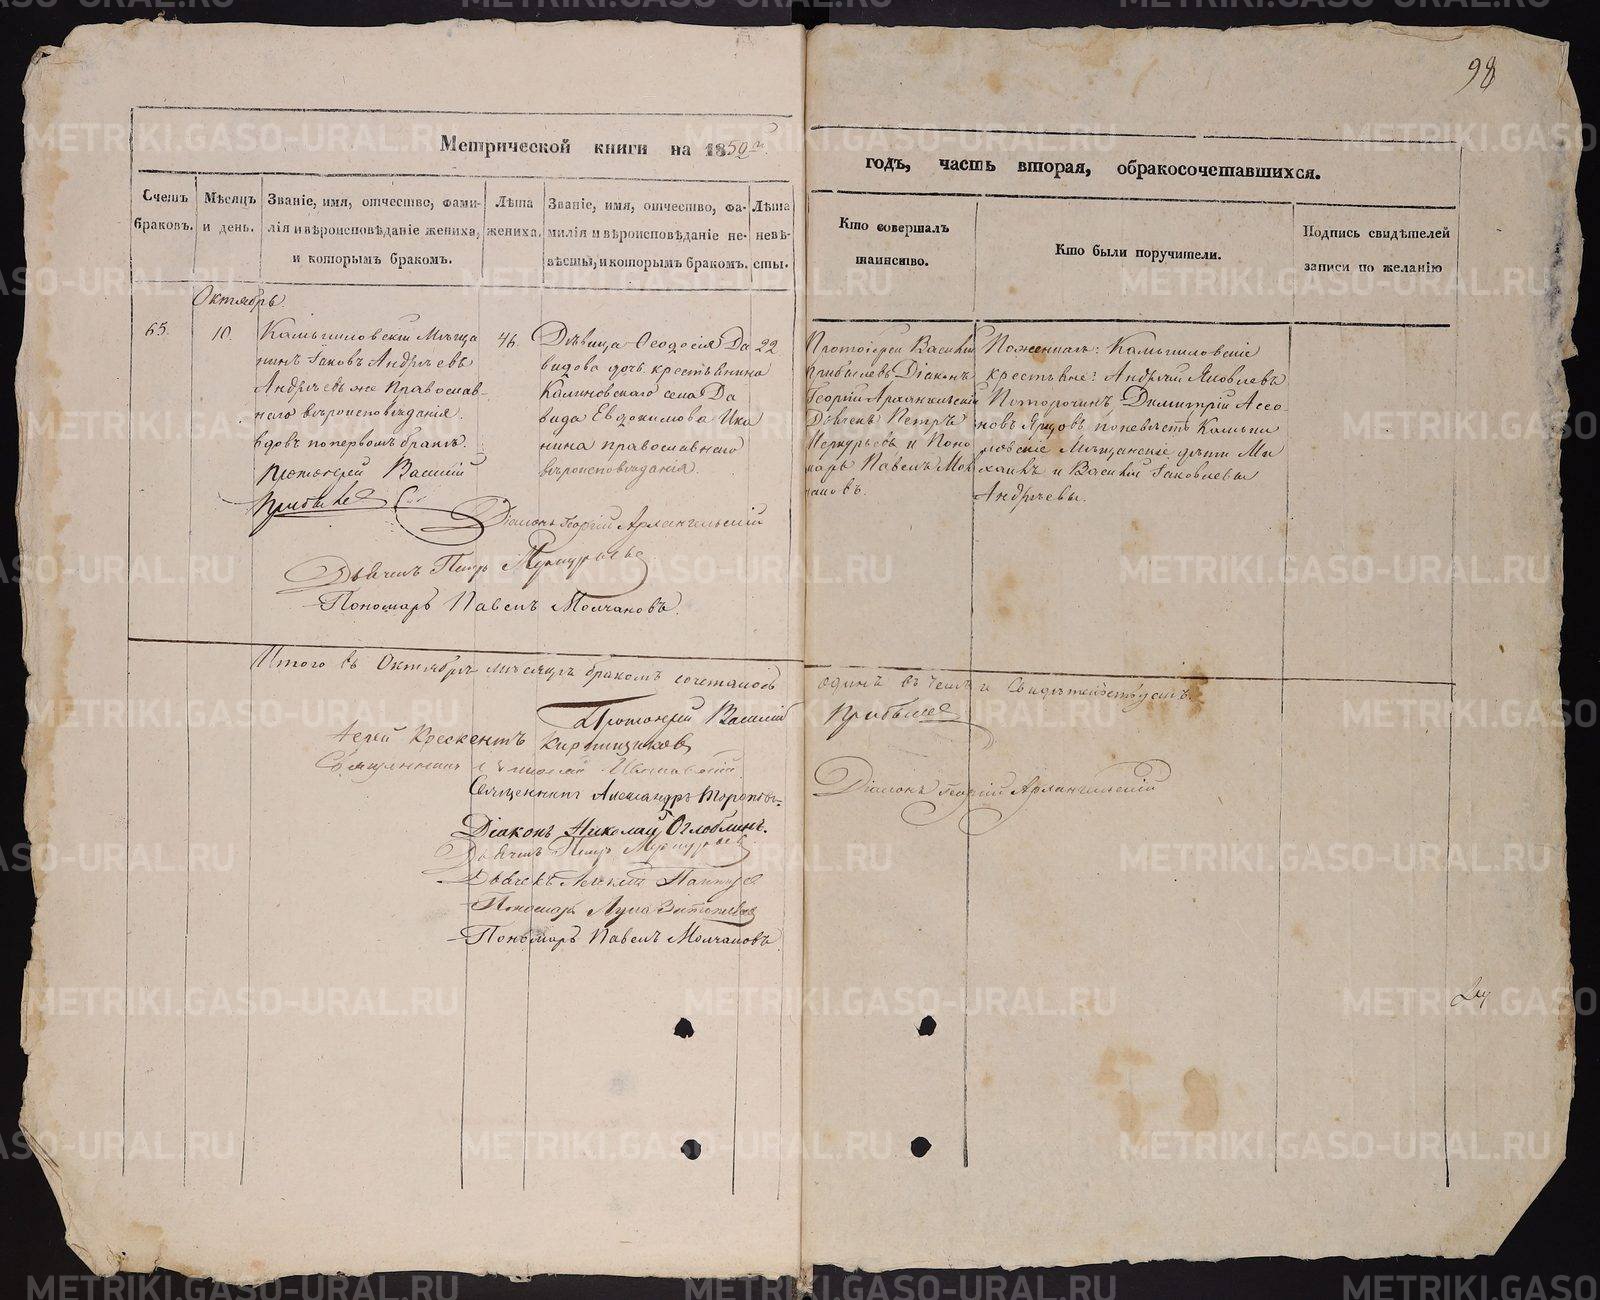 98
Метрической книги на 1850й годъ, часть вторая, обракосочетавшихся.
Счетъ браковъ.
Мѣсяцъ и день.
Званіе, имя, отчество, фами-
лія и вѣроисповѣданіе жениха,
и которымъ бракомъ.
Лѣта
жениха.
Званіе, имя, отчество, фа-
милія и вѣроисповѣданіе не-
вѣсты, и которымъ бракомъ.
Лѣта
невѣ-
сты.
Кто совершалъ
таинство.
Кто были поручители.
Подпись свидѣтелей
записи по желанію
Октябрь.
65.
10.
Камышловскій Мѣща
нинъ Іаковъ Андрѣевъ
Андрѣевъ же православ-
наго вѣроисповѣданія.
вдовъ по первомъ бракѣ.
46.
Дѣвица Ѳеодосія Да
видова дочь крестьянина
Калиновскаго села Да
вида Евдокимова
православнаго
вѣроисповѣданія.
22
Протоіерей Василій
Прибылевъ Діаконъ
Георгій Архангельскій
Дьячекъ Петръ
Меркурьевъ и Поно
марь Павелъ Мол
чановъ.
По женихѣ: Камышловскіе
крестьяне: Андрей Яковлевъ
Поторочинъ Димитрій
новъ Ярцовъ по невѣстѣ Камыш
ловскіе Мѣщанскіе дѣти Ми
хаилъ и Василій Іаковлевы
Андрѣевы.
Протоіерей Василій
Прибылевъ
Діаконъ Георгій Архангельскій
Дьячекъ Петръ Меркурьевъ
Пономарь Павелъ Молчановъ.
Итого въ Октябрѣ мѣсяцѣ бракомъ сочеталось одинъ въ чемъ и свидѣтельствуемъ.
Протоіерей Василій Прибылевъ
Іерей Крескентъ Кирпищиковъ
Священникъ
Священникъ Александръ Тороповъ.
Діаконъ Георгій Архангельскій
Діаконъ Николай Оглоблинъ.
Дьячекъ Петръ Меркурьевъ
Дьячекъ
Пономарь Лука
Пономарь Павелъ Молчановъ
METRIKI.GASO-URAL.RU